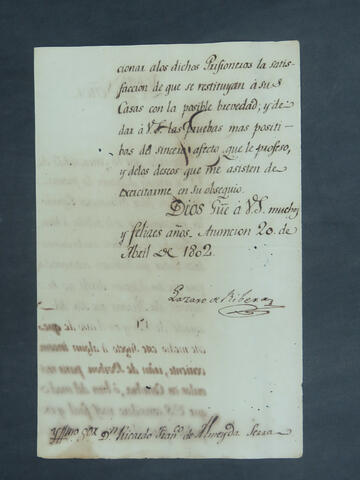 cionar alos dichos Prisioneros la satis-
faccion de que se restituyan à su s
Casas con la posible brevedad; y de
dar à V.S. las pruebas mas positi-
bas del sincero afecto que le profeso,
y delos deseos que me asisten de
exercitarme en su obsequio.
Dios gūe à V.S. muchos
y felizes años. Asuncion 20. de
Abril de 1802
Lazaro de Ribera
Yllmo Sor. Dn. Ricardo Franco. de Almeyda Serra